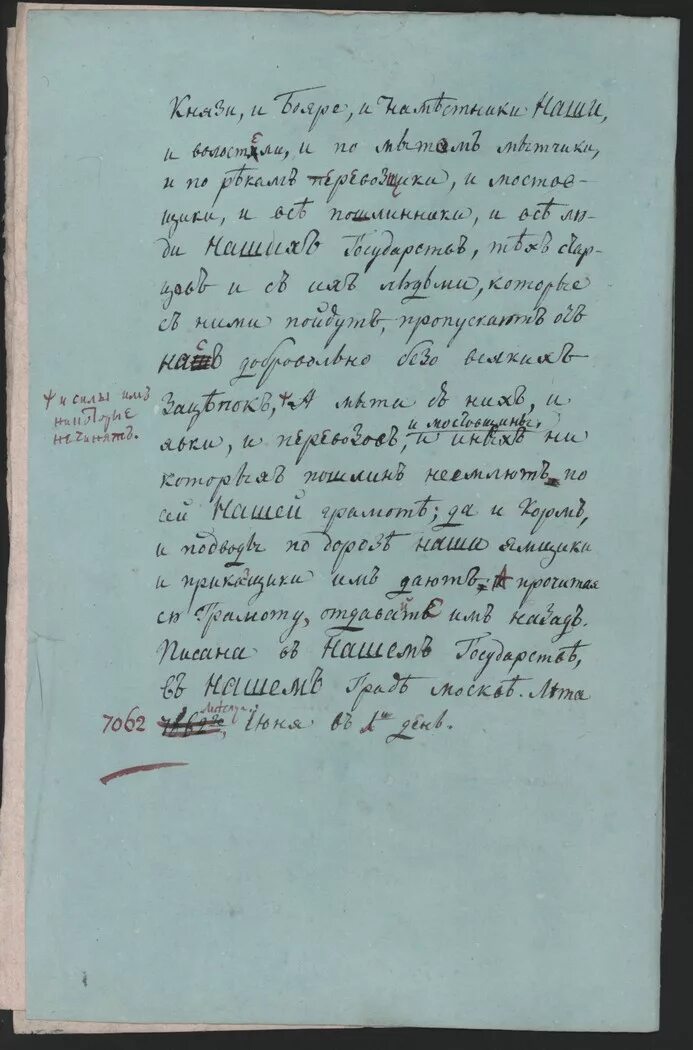 Князи, и Бояре, и Намѣстники Наши,
и волостЕли, и по мытомъ мытчики,
и по рѣкамъ перевозщики, и мостов-
щики, и всѣ пошлинники, и всѣ лю-
ди Нашихъ Государствъ, тѣхъ стар-
цовъ и съ ихъ людьми, которые
съ ними пойдутъ, пропускаютъ
добровольно безо всякихъ
Зацѣпокъ, А мыти съ нихъ, и
и силы имъ
никоторые
не чинятъ.
и мостовщины,
явки, и перевозовъ, и иныхъ ни
которыхъ пошлинъ неемлютъ по
сей Нашей грамотѣ; да и Кормъ,
и подводы по дорозѣ наши ямщики
и прикащики имъ даютъ; А прочитая
сю Грамоту, отдавайтЕ имъ назадъ.
Писана въ Нашемъ Государствѣ,
въ Нашемъ Градѣ Москвѣ. Лѣта
7062 Июня въ день.